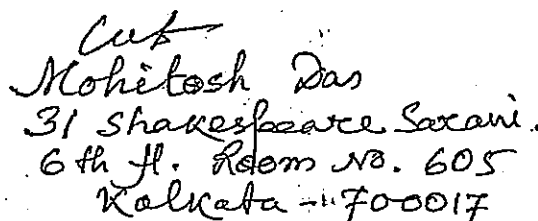 Mohitosh Das
31 Shakespeare Sarani.
6th fl. Room No. 605
Kolkata - 700017